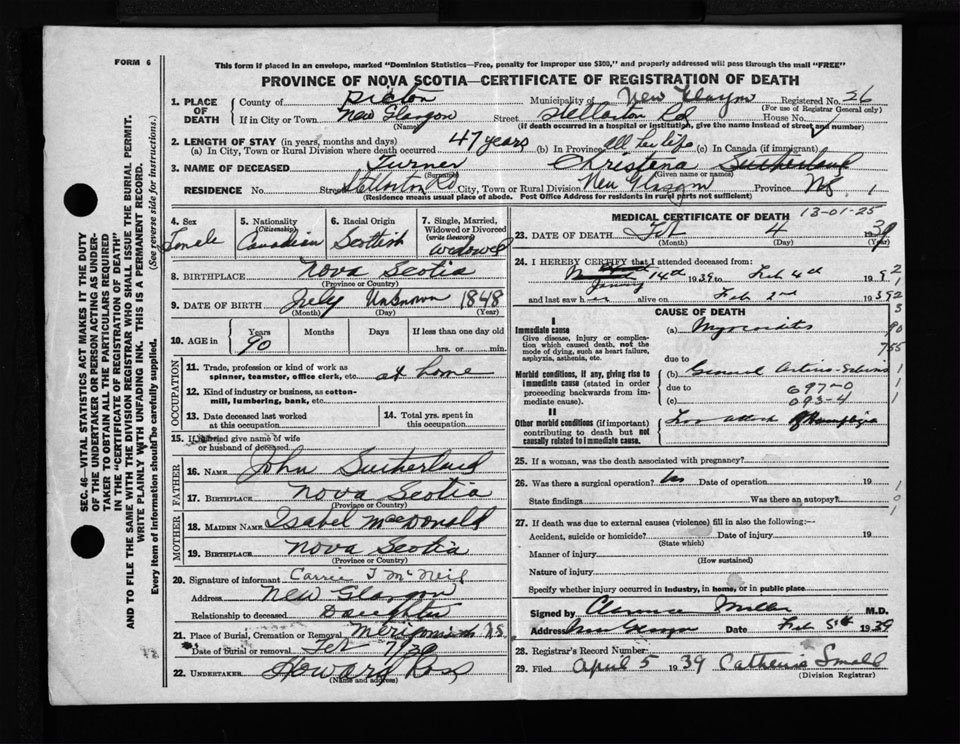 FORM 6
This form if placed in an envelope, marked "Dominion Statistics—Free, penalty for improper use $300," and properly addressed will pass through the mail "FREE"
PROVINCE OF NOVA SCOTIA—CERTIFICATE OF REGISTRATION OF DEATH
1. PLACE OF DEATH County of Pictou Municipality of New Glasgow Registered No. 26
(For use of Registrar General only)
If in City or Town New Glasgow Street Stellarton Rd House No.
(Name) (If death occurred in a hospital or institution, give the name instead of street and number)
2. LENGTH OF STAY (in years, months and days)
(a) In City, Town or Rural Division where death occurred 47 years (b) In Province all her life (c) In Canada (if immigrant)
3. NAME OF DECEASED Turner Christena Sutherland
(Surname) (Given name or names)
RESIDENCE No. Street Stellarton Rd City, Town or Rural Division New Glasgow Province NS. 1
(Residence means usual place of abode. Post Office Address for residents in rural parts not sufficient)
4. Sex Female
5. Nationality (Citizenship) Canadian
6. Racial Origin Scottish
7. Single, Married, Widowed or Divorced (write the word) Widowed
8. BIRTHPLACE Nova Scotia
(Province or Country)
9. DATE OF BIRTH July Unknown 1848
(Month) (Day) (Year)
10. AGE in Years 90 Months Days If less than one day old
hrs. or min.
OCCUPATION
11. Trade, profession or kind of work as spinner, teamster, office clerk, etc. at home
12. Kind of industry or business, as cotton-mill, lumbering, bank, etc.
13. Date deceased last worked at this occupation
14. Total yrs. spent in this occupation
15. If married give name of wife or husband of deceased
FATHER
16. NAME John Sutherland
17. BIRTHPLACE Nova Scotia
(Province or Country)
MOTHER
18. MAIDEN NAME Isabel MacDonald
19. BIRTHPLACE Nova Scotia
(Province or Country)
20. Signature of informant Carrie T McNeil
Address New Glasgow
Relationship to deceased Daughter
21. Place of Burial, Cremation or Removal N.S.
Date of burial or removal Feb 7/39
22. UNDERTAKER Howard Ross
(Name and address)
MEDICAL CERTIFICATE OF DEATH 13-01-25
23. DATE OF DEATH Feb 4 1939
(Month) (Day) (Year)
24. I HEREBY CERTIFY that I attended deceased from:
14th 1939 to Feb 4th 1939
and last saw her alive on Feb 2nd 1939
CAUSE OF DEATH
I
Immediate cause
Give disease, injury or complication which caused death, not the mode of dying, such as heart failure, asphyxia, asthenia, etc.
(a) Myocarditis
due to
Morbid conditions, if any, giving rise to immediate cause (stated in order proceeding backwards from immediate cause).
(b) General
due to 697-0
(c) 093-4
II
Other morbid conditions (if important) contributing to death but not causally related to immediate cause.
25. If a woman, was the death associated with pregnancy?
26. Was there a surgical operation? no Date of operation 19
State findings Was there an autopsy?
27. If death was due to external causes (violence) fill in also the following:—
Accident, suicide or homicide? Date of injury 19
(State which)
Manner of injury
(How sustained)
Nature of injury
Specify whether injury occurred in industry, in home, or in public place
Signed by Clarence Miller M.D.
Address New Glasgow Date Feb 5th 1939
28. Registrar's Record Number
29. Filed April 5 1939 Catherine Small
(Division Registrar)
SEC. 46—VITAL STATISTICS ACT MAKES IT THE DUTY
OF THE UNDERTAKER OR PERSON ACTING AS UNDER-
TAKER TO OBTAIN ALL THE PARTICULARS REQUIRED
IN THE "CERTIFICATE OF REGISTRATION OF DEATH"
AND TO FILE THE SAME WITH THE DIVISION REGISTRAR WHO SHALL ISSUE THE BURIAL PERMIT.
WRITE PLAINLY WITH UNFADING INK. THIS IS A PERMANENT RECORD.
Every item of Information should be carefully supplied. (See reverse side for instructions.)